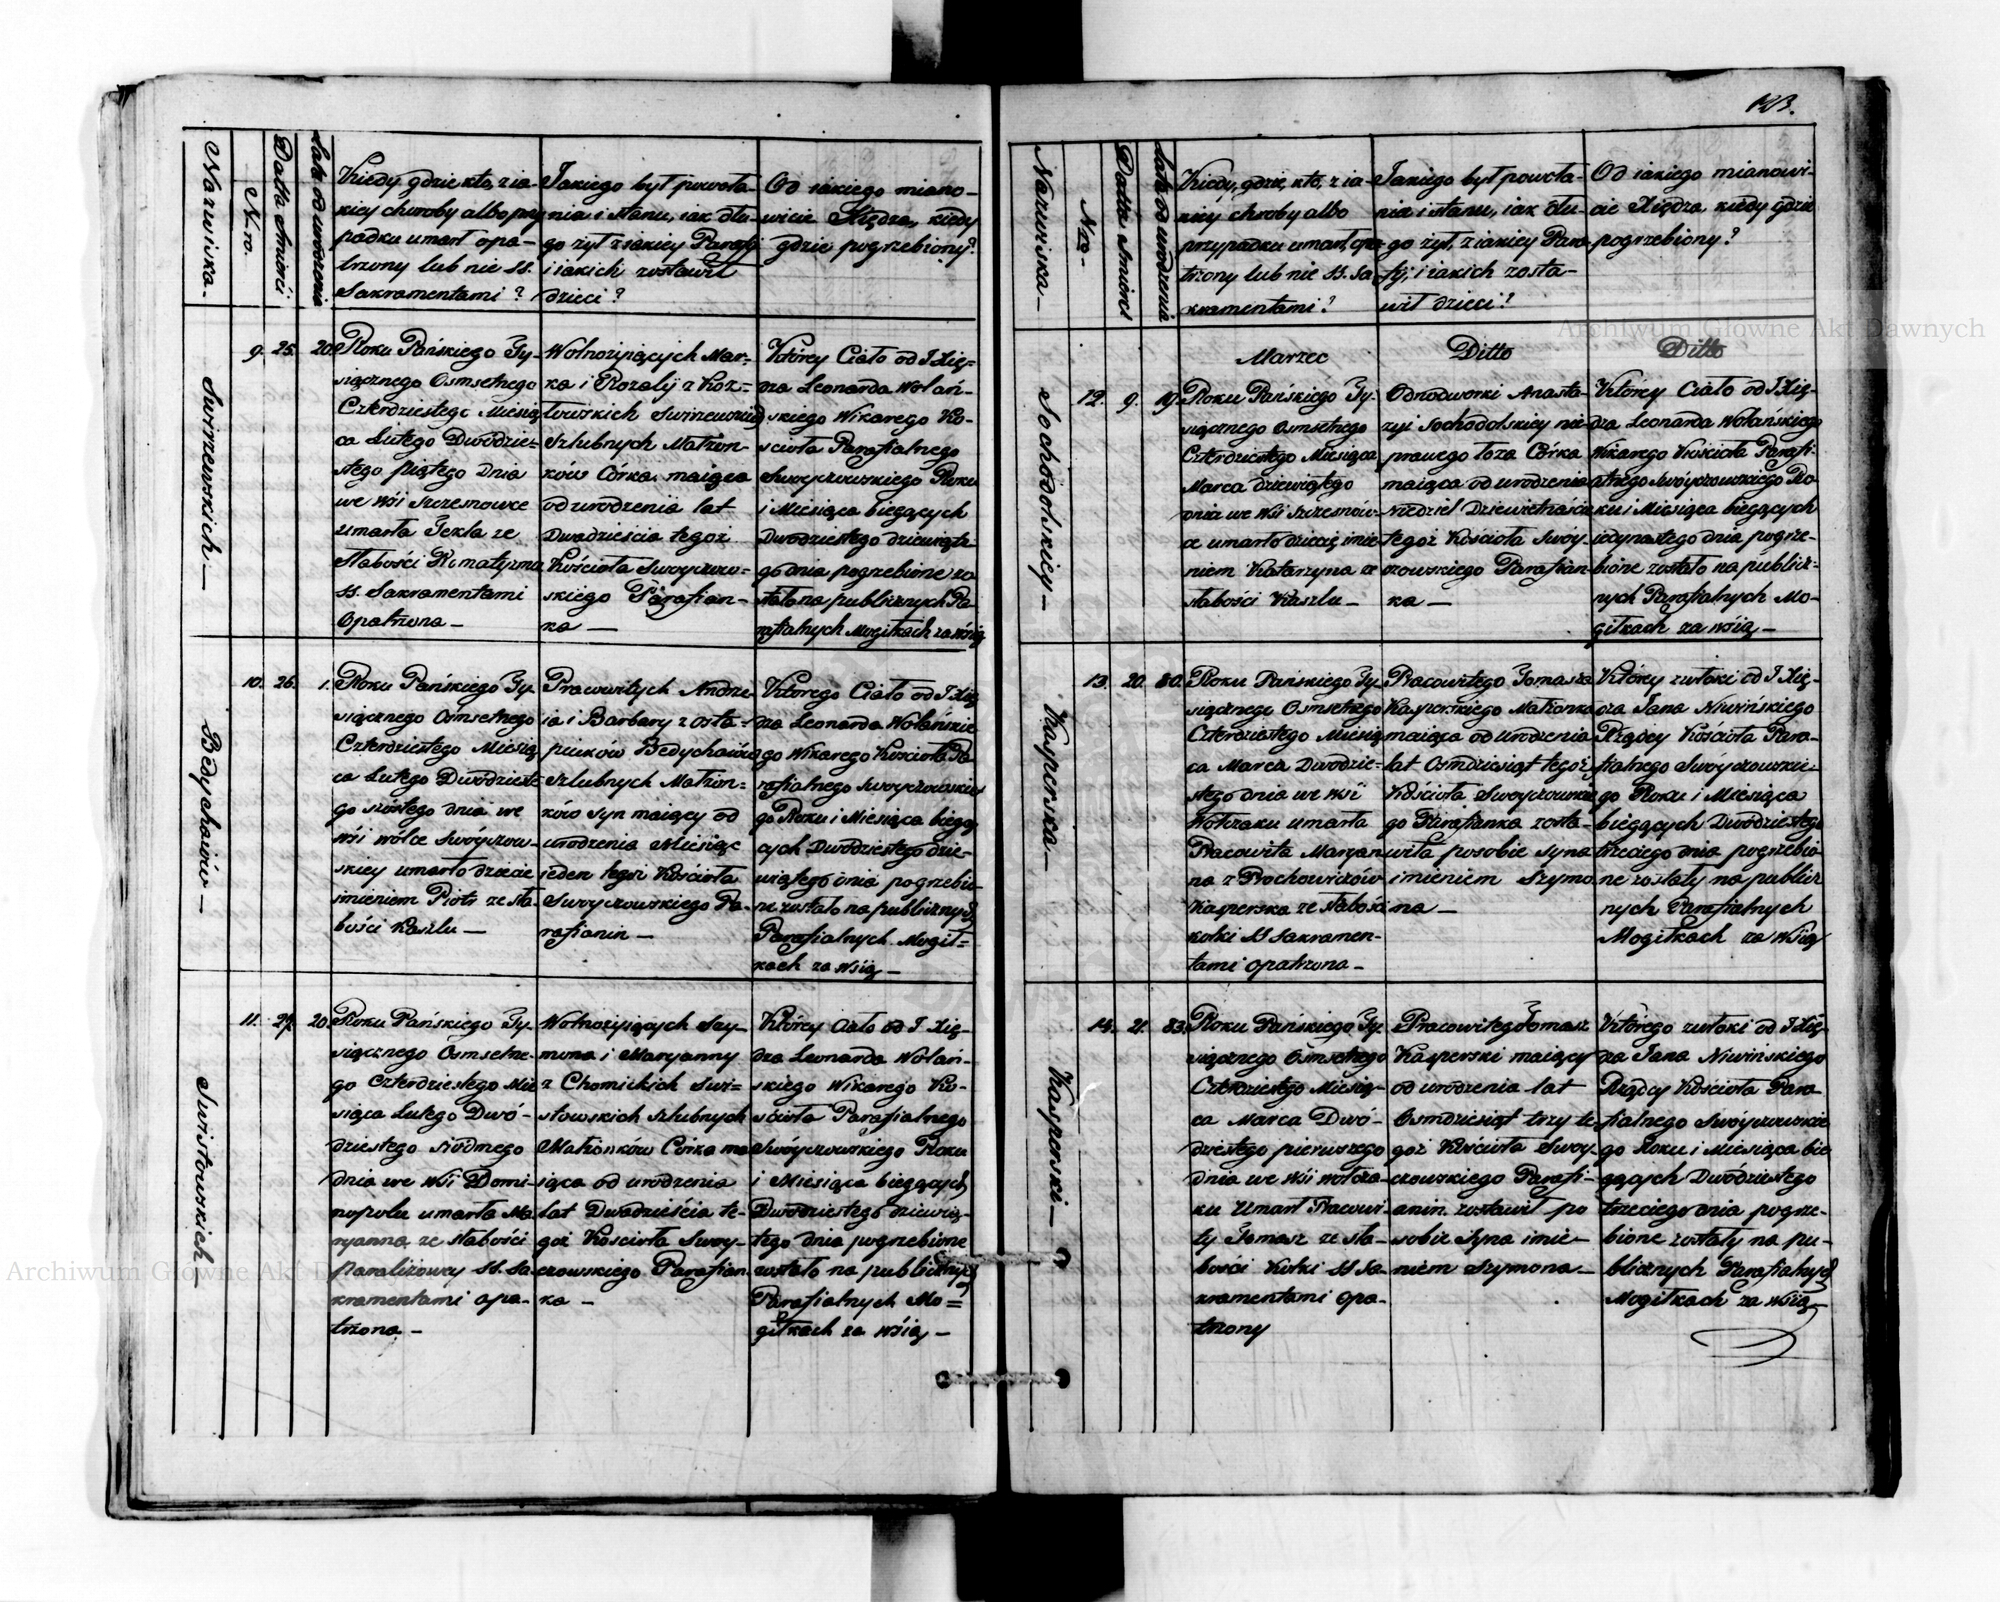 123.
Nazwiska.
Nro.
Datta Smierci
Lata od urodzenia
Kiedy, gdzie kto, z ia-
kiey choroby albo przy
padku umarł opa-
trzony lub nie SS.
Sakramentami?
Jakiego był powoła-
nia i stanu, iak dłu-
go żył z iakiey Parafij
i iakich zostawił
dzieci?
Od iakiego miano-
wicie Xiędza, kiedy
gdzie pogrzebiony?
Swirzewskich —
9. 25. 20.
Roku Pańskiego Ty-
siącznego Osmsetnego
Czterdziestego Miesią
ca Lutego Dwódzie-
stego piątego dnia
we Wsi Szczesnowce
umarła Tekla ze
słabości Rematyzmu
SS. Sakramentami
Opatrzona —
Wolnożyiących Mar-
ka i Rozalij z Koz-
łowskich Swirzewskich
Szlubnych Małżon-
ków Córka maiąca
od urodzenia lat
Dwadzieścia tegoż
Kościoła Swoyczow-
skiego Parafian-
ka —
Którey Ciało od J. Xię-
dza Leonarda Wolań-
skiego Wikarego Ko-
ścioła Parafialnego
Swoyczowskiego Roku
i Miesiąca bieżących
Dwódziestego dziewiąte-
go dnia pogrzebione zo
stało na publicznych Pa-
rafialnych Mogiłkach za Wsią
Bedychaiów —
10. 26. 1.
Roku Pańskiego Ty-
siącznego Osmsetnego
Czterdziestego Miesią
ca Lutego Dwódzieste-
go szóstego dnia we
Wsi Wólce Swóyczow-
skiey umarło dziecie
imieniem Piotr ze sła-
bości Kaszlu —
Pracowitych Andrze-
ia i Barbary z Osta-
piuków Bedychaiów
Szlubnych Małżon-
ków syn maiący od
urodzenia Miesiąc
ieden tegoż Kościoła
Swoyczowskiego Pa-
rafianin —
Którego Ciało od J. Xię
dza Leonarda Wolańskie
go Wikarego Kościoła Pa
rafialnego Swoyczowskie
go Roku i Miesiąca bieżą
cych Dwódziestego dzie-
wiątego dnia pogrzebio-
ne zostało na publicznych
Parafialnych Mogił-
kach za Wsią —
Swisłowskich —
11. 27. 20.
Roku Pańskiego Ty-
siącznego Osmsetne-
go Czterdziestego Mie
siąca Lutego Dwó-
dziestego siódmego
dnia we Wsi Domi-
nopolu umarła Ma
ryanna ze słabości
paraliżowey SS. Sa-
kramentami opa-
trzona —
Wolnożyiących Szy-
mona i Maryanny
z Chomickich Swi-
słowskich Szlubnych
Małżonków Córka ma
iąca od urodzenia
lat Dwadzieścia te-
goż Kościoła Swoy-
czowskiego Parafian
ka —
Którey Ciało od J. Xię-
dza Leonarda Wolań-
skiego Wikarego Ko-
ścioła Parafialnego
Swóyczowskiego Roku
i Miesiąca bieżących
Dwódziestego dziewią-
tego dnia pogrzebione
zostało na publicznych
Parafialnych Mo-
giłkach za Wsią —
Nazwiska —
Nro —
Datta Smierci
Lata od urodzenia
Kiedy, gdzie, kto, z ia-
kiey choroby albo
przypadku umarł, opa-
trzony lub nie SS. Sa
kramentami?
Jakiego był powoła-
nia i stanu, iak dłu-
go żył, z iakiey Para
fij, i iakich zosta-
wił dzieci?
Od iakiego mianowi-
cie Xiędza, kiedy gdzie
pogrzebiony?
Marzec
Ditto
Ditto
Sochodolskiey —
12. 9. 19.
Roku Pańskiego Ty-
siącznego Osmsetnego
Czterdziestego Miesiąca
Marca dziewiątego
dnia we Wsi Szczesnów-
ce umarło dziecię imie-
niem Katarzyna ze
słabości Kaszlu —
Odnodworki Anasta-
zyi Sochodolskiey nie-
prawego łoża Córka
maiąca od urodzenia
niedziel Dziewietnaście
tegoż Kościoła Swoy-
czowskiego Parafian-
ka —
Którey Ciało od J. Xię-
dza Leonarda Wolańskiego
Wikarego Kościoła Parafi-
alnego Swóyczowskiego Ro-
ku i Miesiąca bieżących
iedynastego dnia pogrze-
bione zostało na publicz-
nych Parafialnych Mo-
giłkach za Wsią —
Kasperska —
13. 20. 80.
Roku Pańskiego Ty-
siącznego Osmsetnego
Czterdziestego Miesią
ca Marca Dwódzie-
stego dnia we Wsi
Wołczaku umarła
Pracowita Maryan
na z Prochowiczów
Kasperska ze słabości
kolki SS Sakramen-
tami opatrzona —
Pracowitego Tomasza
Kasperskiego Małżonka
maiąca od urodzenia
lat Osmdziesiąt tegoż
Kościoła Swoyczowskie
go Parafianka zosta-
wiła posobie syna
imieniem Szymo
na —
Którey zwłoki od J. Xię-
dza Jana Niwińskiego
Rządcy Kościoła Para-
fialnego Swoyczowskie-
go Roku i Miesiąca
bieżących Dwódziestego
trzeciego dnia pogrzebio-
ne zostały na publicz
nych Parafialnych
Mogiłkach za Wsią
Kasperski —
14. 21. 83.
Roku Pańskiego Ty-
siącznego Osmsetnego
Czterdziestego Miesią-
ca Marca Dwó-
dziestego pierwszego
dnia we Wsi Wołcza-
ku Umarł Pracowi-
ty Tomasz ze sła-
bości Kolki SS Sa-
kramentami Opa-
trzony
Pracowitego Tomasz
Kasperski maiący
od urodzenia lat
Osmdziesiąt trzy te-
goż Kościoła Swoy-
czowskiego Parafi-
anin. zostawił po
sobie Syna imie-
niem Szymona —
Którego zwłoki od J Xię-
dza Jana Niwińskiego
Rządcy Kościoła Para-
fialnego Swóyczowskie
go Roku i Miesiąca bie
żących Dwódziestego
trzeciego dnia pogrze-
bione zostały na pu-
blicznych Parafialnych
Mogiłkach za Wsią —
Archiwum Główne Akt Dawnych
Archiwum Główne Akt D